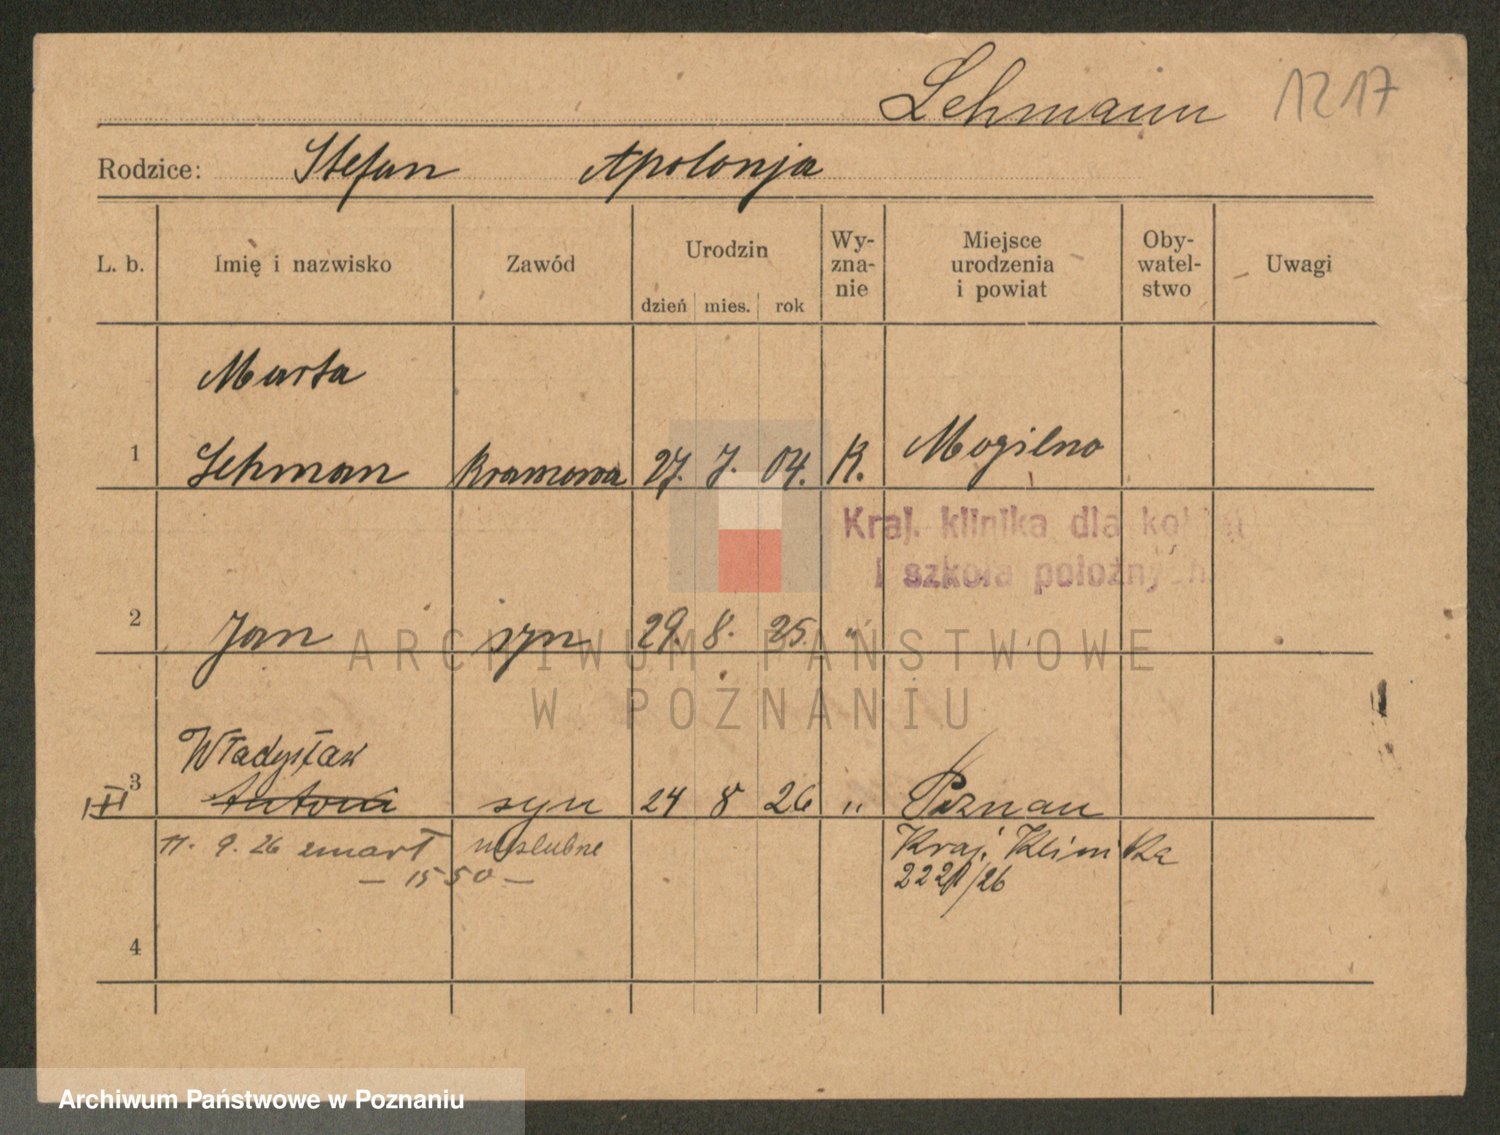 Lehmann 1217
Rodzice: Stefan Apolonja
L. b. Imię i nazwisko Zawód Urodzin Wy-zna-nie Miejsce urodzenia i powiat Oby-watel-stwo Uwagi
dzień mies. rok
Marta
1 Lehman krawcowa 27. 7. 04. K. Mogilno
Kraj. klinika dla kobiet
i szkoła położnych
2 Jan syn 29. 8. 25. "
ARCHIWUM PAŃSTWOWE
W POZNANIU
Władysław
3 Antoni syn 24 8 26 " Poznań
III
11. 9. 26 zmarł nieślubne Kraj. Klinika
- 1550 - 2221/26
4
Archiwum Państwowe w Poznaniu